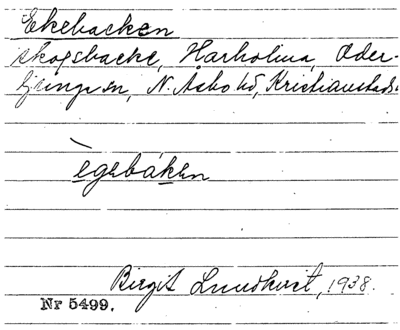 Ekebacken
skogsbacke, Harholma, Oder-
ljungen, N. Åsbo hd, Kristianstads
ègebáken
Birgit Lundkvist, 1938.
Nr 5499.